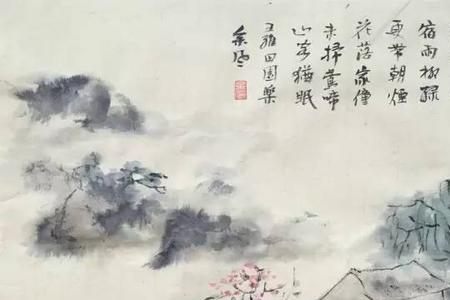 宿雨柳綠
更帶朝煙
花落家僮
未掃鶯啼
山客猶眠
王維田園樂